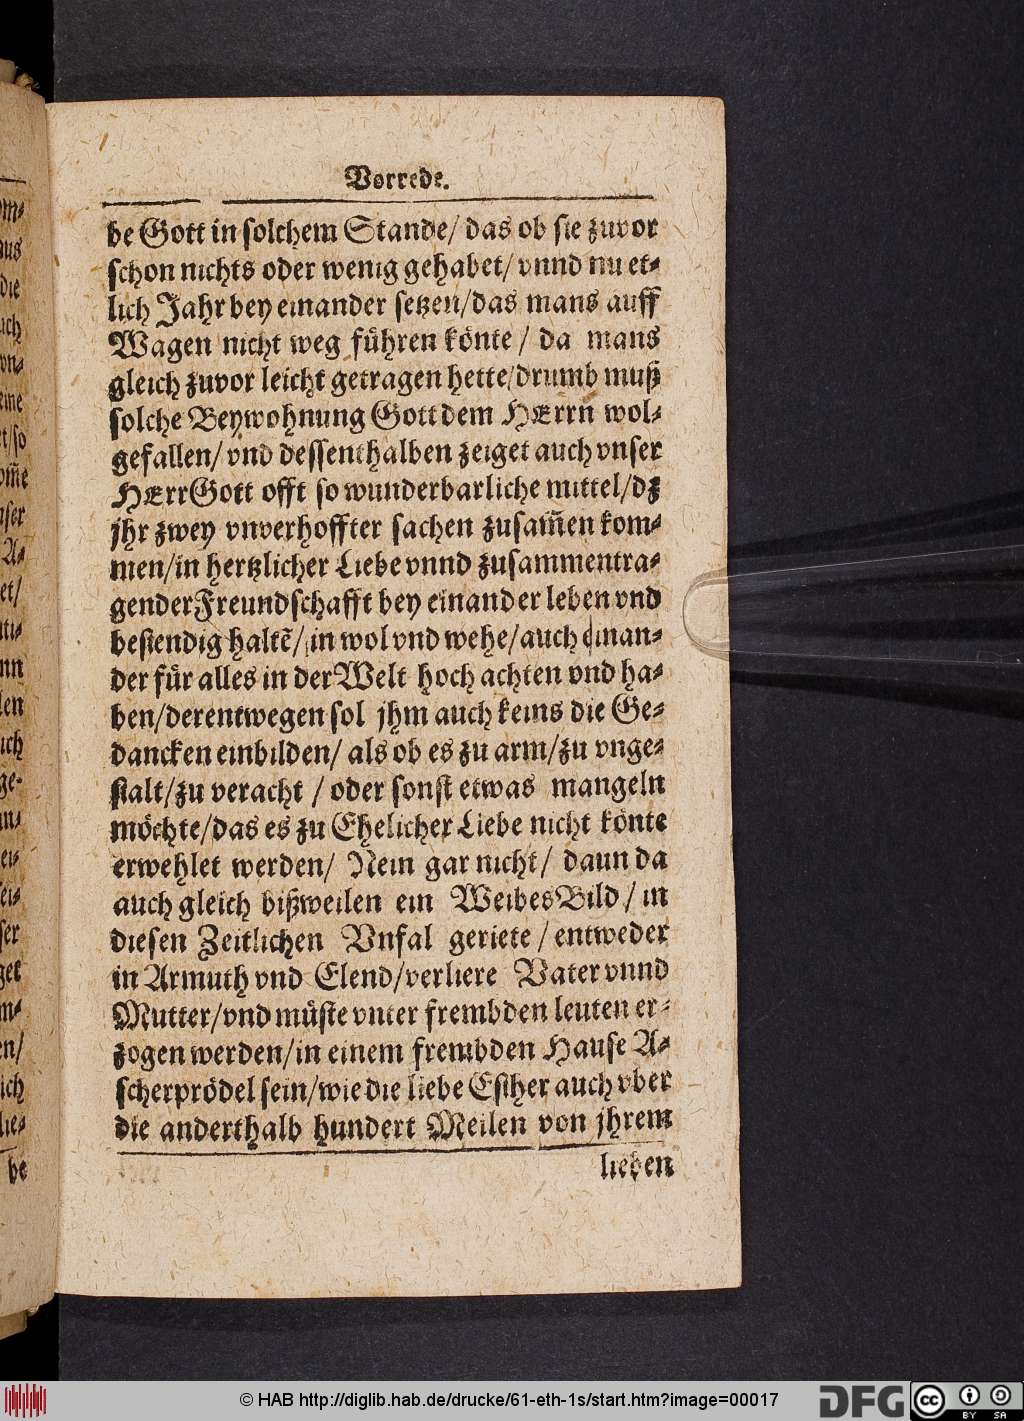 Vorrede.
be Gott in solchem Stande/ das ob sie zuvor
schon nichts oder wenig gehabet/ vnnd nu et-
lich Jahr bey einander setzen/das mans auff
Wagen nicht weg führen könte / da mans
gleich zuvor leicht getragen hette/drumb muß
solche Beywohnung Gott dem HErrn wol-
gefallen/ vnd dessenthalben zeiget auch vnser
HErrGott offt so wunderbarliche mittel/dz
jhr zwey vnverhoffter sachen zusam̃en kom-
men/in hertzlicher Liebe vnnd zusammentra-
gender Freundschafft bey einander leben vnd
bestendig haltẽ/ in wol vnd wehe/auch einan-
der für alles in der Welt hoch achten vnd ha-
ben/derentwegen sol jhm auch keins die Ge-
dancken einbilden/ als ob es zu arm/zu vnge-
stalt/zu veracht / oder sonst etwas mangeln
möchte/das es zu Ehelicher Liebe nicht könte
erwehlet werden/ Nein gar nicht/ daun da
auch gleich bißweilen ein WeibesBild / in
diesen Zeitlichen Vnfal geriete / entweder
in Armuth vnd Elend/verliere Vater vnnd
Mutter/vnd müste vnter frembden leuten er-
zogen werden/in einem frembden Hause A-
scherprödel sein/wie die liebe Esther auch vber
die anderthalb hundert Meilen von jhrem
lieben
© HAB http://diglib.hab.de/drucke/61-eth-1s/start.htm?image=00017
DFG
cc BY SA